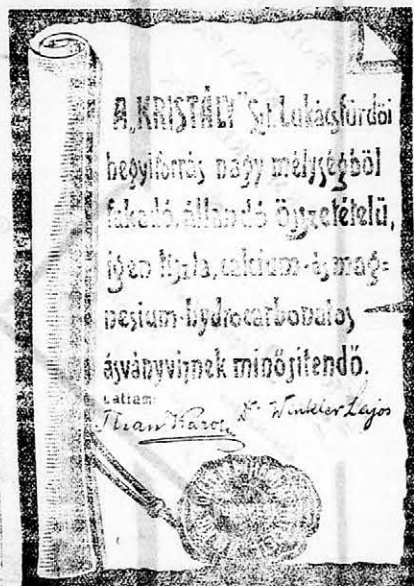 A „KRISTÁLY" Szt. Lukácsfürdői
hegyiforrás nagy mélységből
fakadó, állandó összetételű,
igen tiszta, calcium- és mag-
nesium-hydrocarbonatos
ásványvíznek minősítendő.
Láttam:
Than Károly Dr. Winkler Lajos